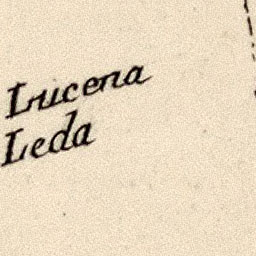 Lucena
Leda